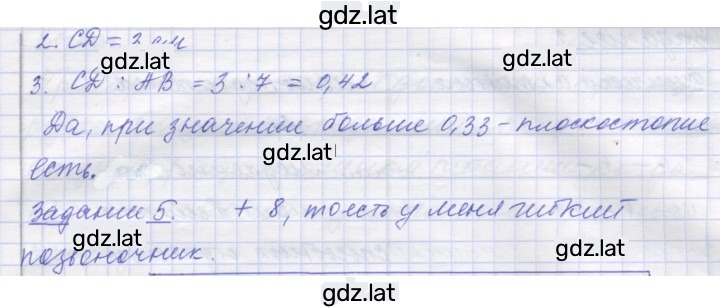 gdz.lat
2. CD = 3 см
gdz.lat
gdz.lat
3. CD : AB = 3 : 7 = 0,42
Да, при значении больше 0,33 - плоскостопие
gdz.lat
есть.
Задании 5. + 8, тоесть у меня гибкий
gdz.lat
gdz.lat
позвоночник.
gdz.lat